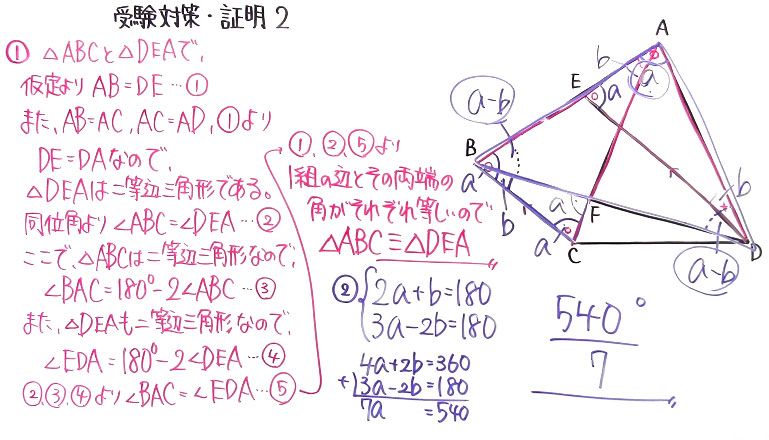 受験対策・証明2
① △ABCと△DEAで、
仮定より AB=DE…①
また、AB=AC, AC=AD, ①より
DE=DAなので、
△DEAは二等辺三角形である。
同位角より∠ABC=∠DEA…②
ここで、△ABCは二等辺三角形なので、
∠BAC=180°-2∠ABC…③
また、△DEAも二等辺三角形なので、
∠EDA=180°-2∠DEA…④
②,③,④より∠BAC=∠EDA…⑤
①,②,⑤より
1組の辺とその両端の
角がそれぞれ等しいので
△ABC≡△DEA
② 2a+b=180
3a-2b=180
4a+2b=360
+) 3a-2b=180
7a =540
540°
7
A
b
a
E
a
a-b
B
a
b
a
F
b
a
C
D
a-b